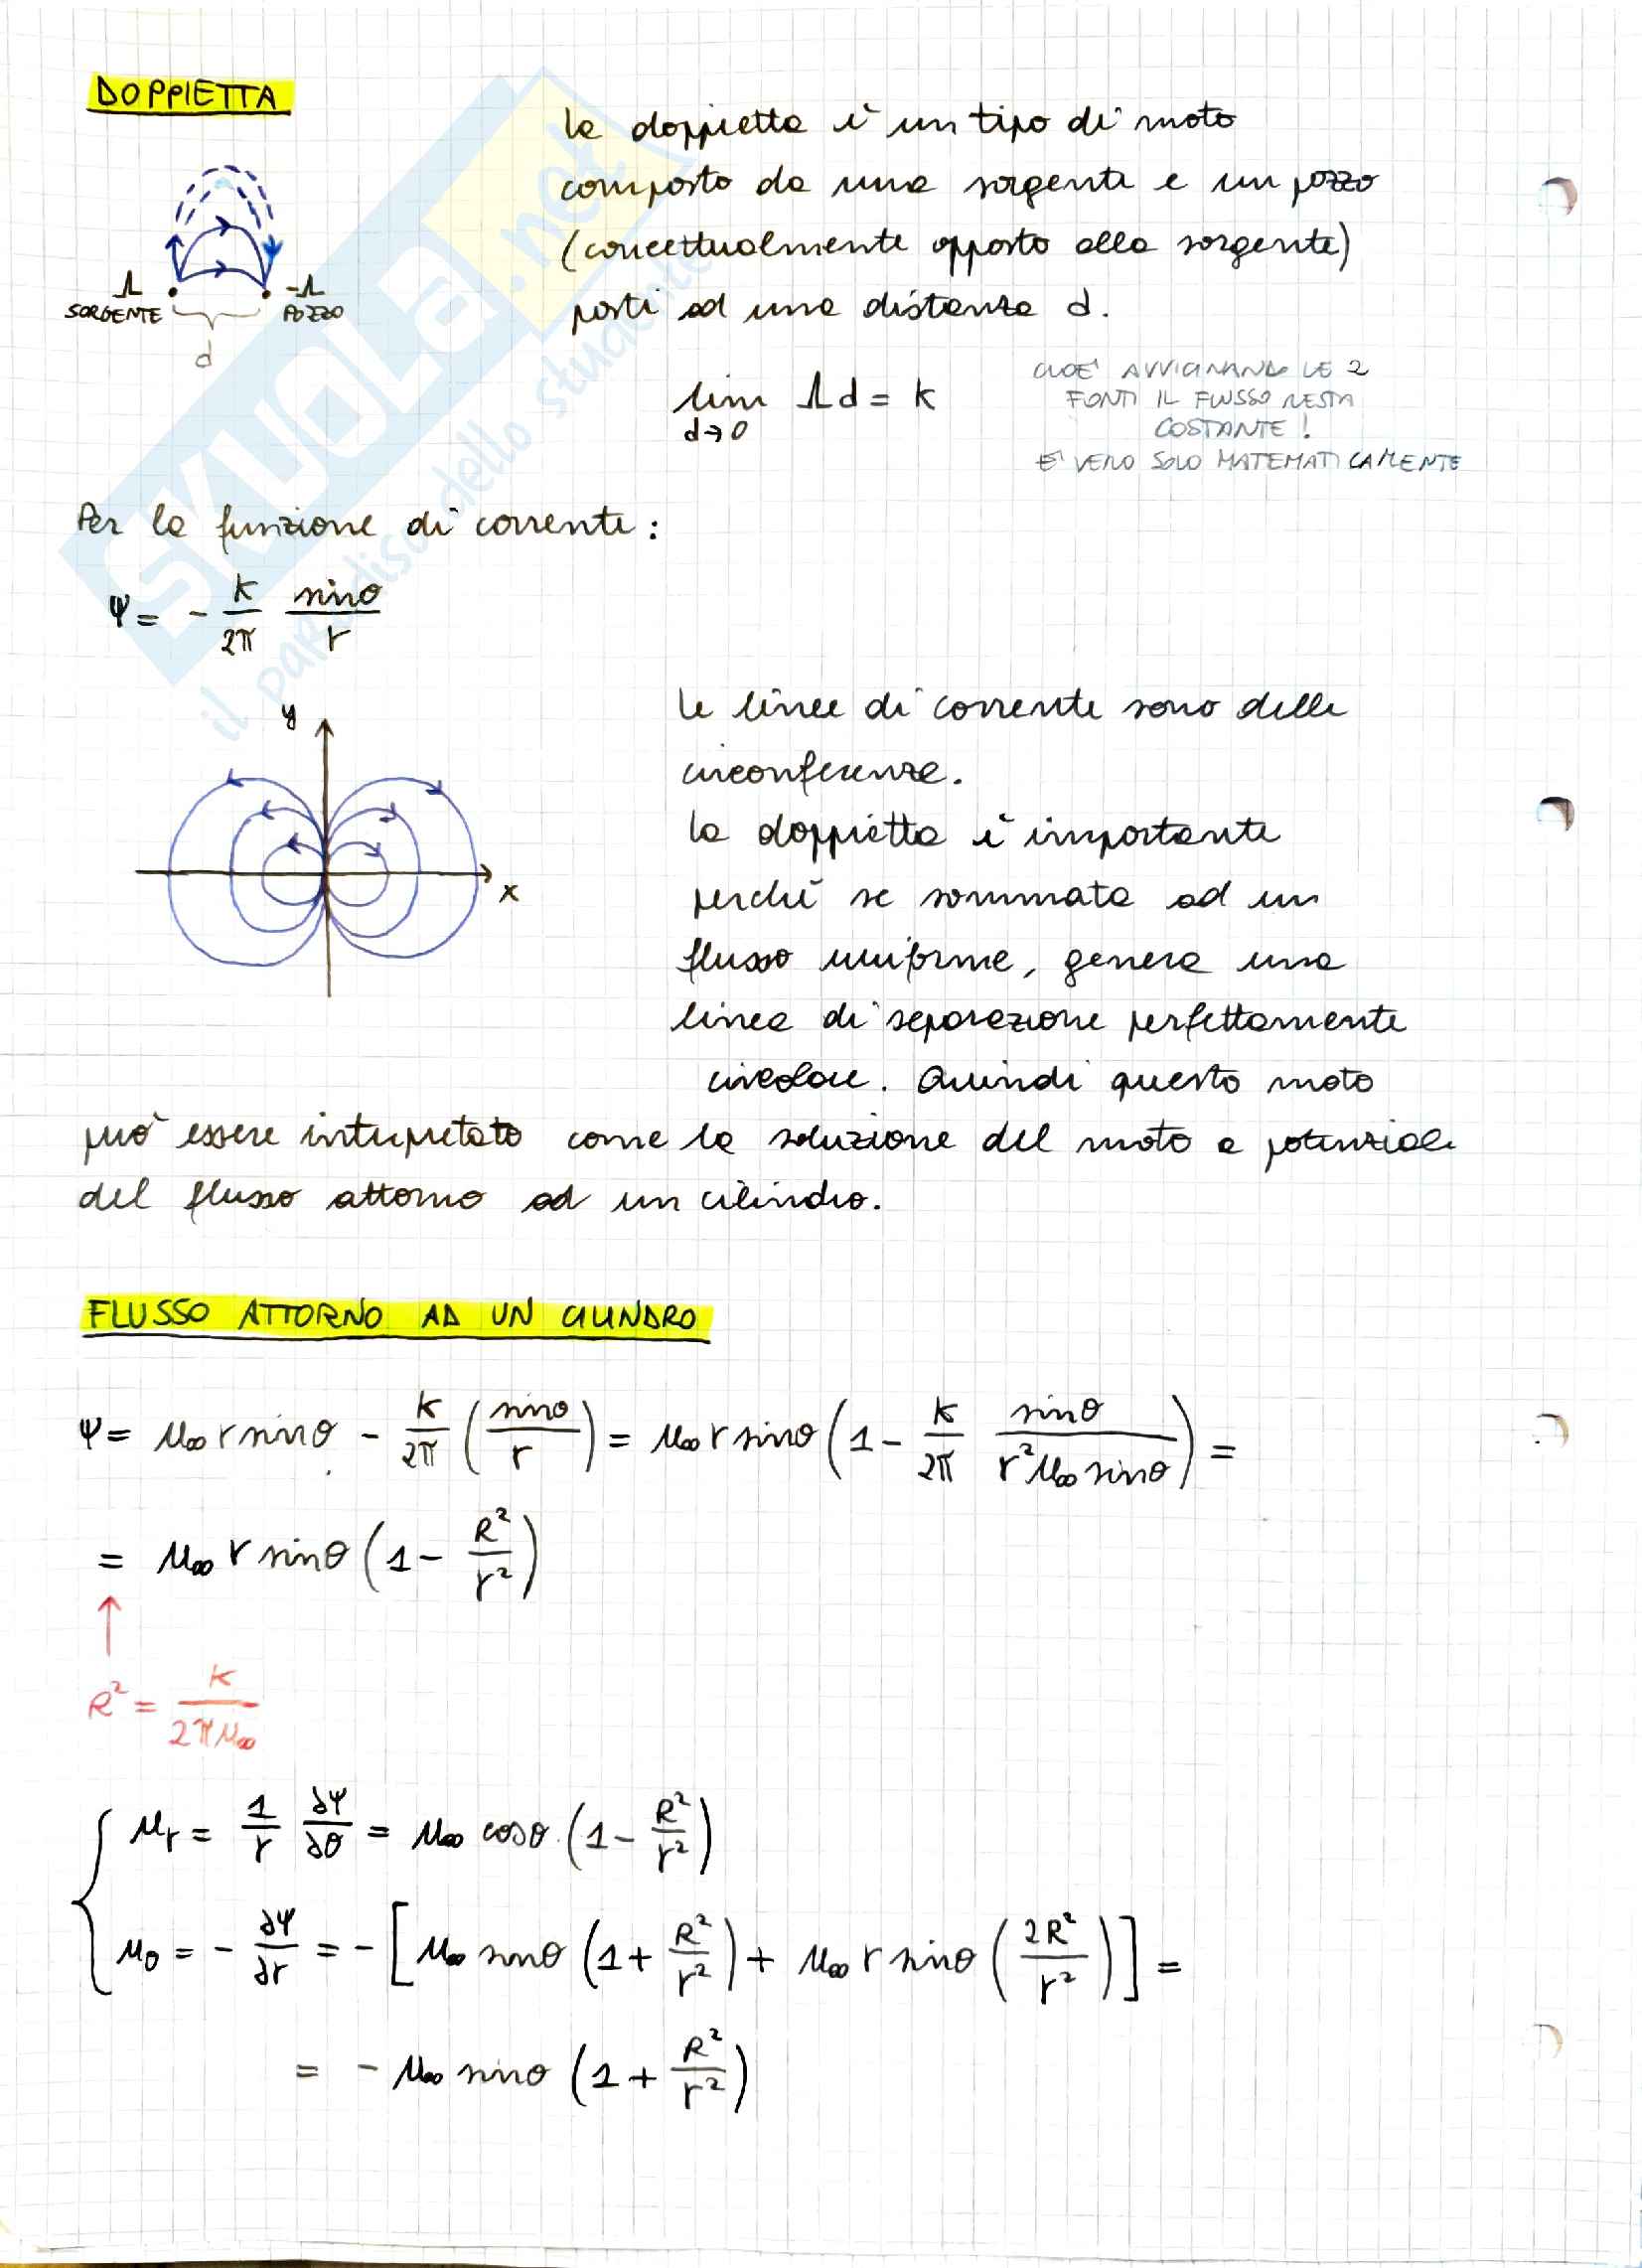 DOPPIETTA
La doppietta è un tipo di moto
composto da una sorgente e un pozzo
(concettualmente opposto alla sorgente)
posti ad una distanza d.
Λ
SORGENTE
-Λ
POZZO
d
lim Λd = K
d→0
CIOE' AVVICINANDO LE 2
FONTI IL FLUSSO RESTA
COSTANTE!
E' VERO SOLO MATEMATICAMENTE
Per la funzione di corrente:
Ψ = - K/2π sinθ/r
y
x
Le linee di corrente sono delle
circonferenze.
La doppietta è importante
perchè se sommata ad un
flusso uniforme, genera una
linea di separazione perfettamente
circolare. Quindi questo moto
può essere interpretato come la soluzione del moto a potenziale
del flusso attorno ad un cilindro.
FLUSSO ATTORNO AD UN CILINDRO
Ψ = u∞ r sinθ - K/2π (sinθ/r) = u∞ r sinθ (1 - K/2π sinθ/r²u∞ sinθ) =
= u∞ r sinθ (1 - R²/r²)
↑
R² = K/2πu∞
{ ur = 1/r ∂Ψ/∂θ = u∞ cosθ (1 - R²/r²)
uθ = - ∂Ψ/∂r = - [u∞ sinθ (1 + R²/r²) + u∞ r sinθ (2R²/r²)] =
= - u∞ sinθ (1 + R²/r²)
SKUOLA.net
il paradiso dello studente